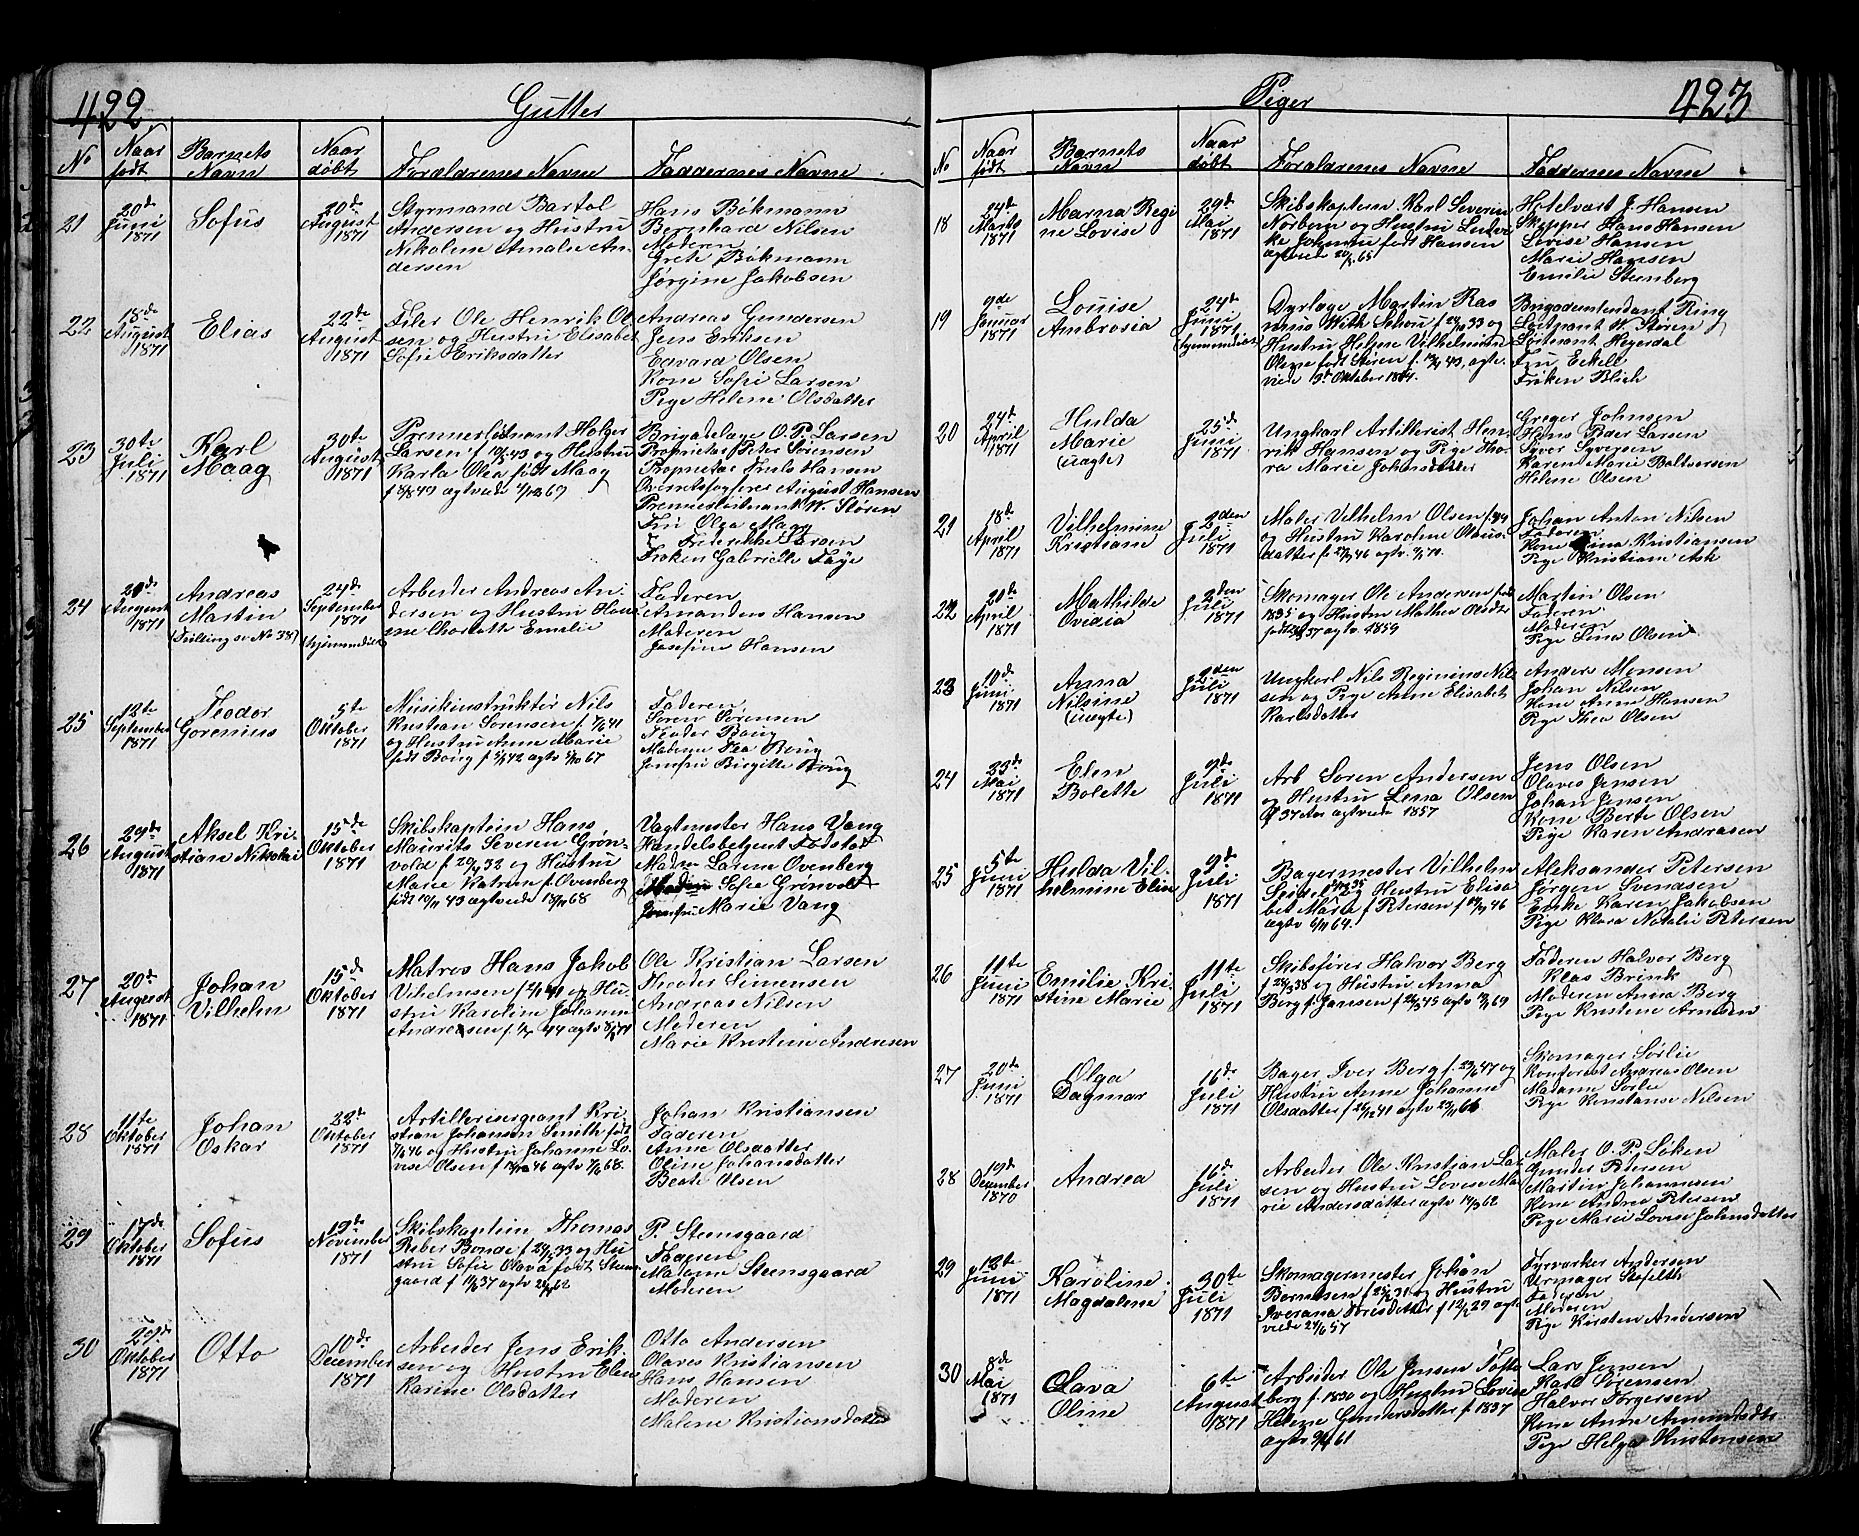 422.
Gutter
No
Naar født
Barnets Navn
Naar døbt
Forældrenes Navne
Faddernes Navne
21
20de Juni 1871
Sofus
20de August 1871
Styrmand Bartol
Andersen og Hustru
Nikoline Amalie An-
dersen
Hans Bökmann
Bernhard Nilsen
Moderen
Grete Bökmann
Jörgine Jakobsen
22
18de August 1871
Elias
22de August 1871
Filer Ole Henrik Ol
sen og Hustru Elisabet
Sofie Eriksdatter
Andreas Gundersen
Jens Eriksen
Edvard Olsen
Kone Sofie Larsen
Pige Helene Olsdatter
23
30te Juli 1871
Karl
Maag
30te August 1871
Premierløitnant Holger
Larsen f 43 og Hustru
Karla Olea født Maag
f 8/8 49 agtviede 67
Brigadelæge O. P. Larsen
Proprietær Peter Sörensen
Proprietær Friis Hansen
August Hansen
Premierløitnant W. Stören
Fru Olga Maag
Frederikke Larsen
Frøken Gabrielle Faye
24
August 1871
Andreas
Martin
(Tvilling se No 38)
24de September 1871
(hjemmedøbt)
Arbeider Andreas An-
dersen og Hustru Han
ne Emilie
Faderen
Amandus Hansen
Moderen
Josefine Hansen
25
12te September 1871
Teodor
Gorenius
5te Oktober 1871
Musikinstruktør Nils
Kristian Sørensen f 41
og Hustru Anne Marie
født Boug f 42 agtv 67
Faderen
Søren Sørensen
Teodor Boug
Madame Tea Boug
Jomfru Birgitte Boug
26
29de August 1871
Aksel Kri-
stian Nikolai
15de Oktober 1871
Skibskaptein Hans
Mauritz Severen Grøn-
vold f 29/ 32 og Hustru
Marie Katrine f. Ovenberg
født 43 agtviede 68
Vagtmester Hans Vang
Handelsbetjent Fodstad
Madm Larine Ovenberg
Sofie Grønvold
Jomfru Marie Vang
27
20de August 1871
Johan
Vilhelm
15de Oktober 1871
Matros Hans Jakob
Vilhelmsen f 41 og Hu-
stru Karoline Johanne
Andreasen f 44 agtv 71
Ole Kristian Larsen
Theodor Simensen
Andreas Nilsen
Moderen
Marie Kristine Andresen
28
11te Oktober 1871
Johan
Oskar
22de Oktober 1871
Artillerisergeant Kri-
stian Johansen Smith født
46 og Hustru Johanne Lo-
vise Olsen f 46 agtv 68.
Johan Kristiansen
Faderen
Anne Olsdatter
Oline Johansdatter
Beate Olsen
29
17de Oktober 1871
Sofus
19de November 1871
Skibskaptein Thomas
Riber Bonde f 33 og Hu
stru Sofie Olava født Steens
gaard f 37 agtv 62
P. Steensgaard
Faderen
Madame Steensgaard
Moderen
30
29de Oktober 1871
Otto
10de December 1871
Arbeider Jens Erik-
sen og Hustru Elen
Karine Olsdatter
Otto Andersen
Olaves Kristiansen
Hans Hansen
Moderen
Helene Kristiansdatter
423
Piger
No
Naar født
Barnets Navn
Naar døbt
Forældrenes Navne
Faddernes Navne
18
24de Marts 1871
Marna Regi
ne Lovise
29de Mai 1871
Skibskaptein Karl Severin
Norbom og Hustru
Johanne født Hansen
agtviede 65
Hotelvært J. Hansen
Skipper Hans Hansen
Lovise Hansen
Marie Hansen
Emilie Stenberg
19
9de Januar 1871
Louise
Ambrosia
24de Juni 1871
(hjemmedøbt)
Dyrlæge Martin Ras
mus With Schou f 33 og
Hustru Helene Vilhelmine
Olene født Stören f. 43, agt-
viede 13de Oktober 1864.
Brigadeintendant Ring
Løitnant W. Stören
Løitnant Heyerdal
Fru Eckell
Frøken Blich
20
24de April 1871
Hulda
Marie
(uægte)
25de Juni 1871
Ungkarl Artillerist Hen-
rik Hansen og Pige Tho-
ra Marie Johansdatter
Greger Johnsen
Hans Peder Larsen
Syver Syversen
Karen Marie Baltsersen
Helene Olsen
21
18de April 1871
Vilhelmine
Kristiane
2den Juli 1871
Maler Vilhelm Olsen f 44
og Hustru Karoline Olaus-
datter f. 46 agtv. 70.
Johan Anton Nilsen
Faderen
Kone Lina Kristiansen
Pige Kristiane Ask
22
20de April 1871
Mathilde
Ovedia
2den Juli 1871
Skomager Ole Andersen født
1835 og Hustru Mathea Olsdtr
født 37 agtv. 1859
Martin Olsen
Faderen
Moderen
Pige Lina Olsen
23
10de Juni 1871
Anna
Nilsine
(uægte)
2den Juli 1871
Ungkarl Nils Reginius Nil
sen og Pige Anne Elisabet
Karlsdatter
Anders Monsen
Johan Nilsen
Kone Anne Hansen
Pige Thea Olsen
24
23de Mai 1871
Elen
Bolette
9de Juli 1871
Arb Søren Andersen
og Hustru Lena Olsen
37 Aar agtviede 1857
Jens Olsen
Olaves Jensen
Johan Jensen
Kone Berte Olsen
Pige Karen Andreasen
25
5te Juni 1871
Hulda Vil-
helmine Elise
9de Juli 1871
Bagermester Vilhelm
Seidel 35 og Hustru Elisa
bet Marie f Petersen f 46
agtv 64.
Aleksander Petersen
Jørgen Svendsen
Enke Karen Jakobsen
Pige Klara Natalie Petersen
26
11te Juni 1871
Emilie Kri-
stine Marie
11te Juli 1871
Skibsfører Halvor Berg
f 38 og Hustru Anna
Berg f. Jansen f 45 agtv 69
Faderen Halvor Berg
Klas Brinck
Moderen Anna Berg
Pige Kristine Arnesen
27
20de Juni 1871
Olga
Dagmar
16de Juli 1871
Bager Iver Berg f. 47 og
Hustru Anne Johanne
Olsdatter f 41 agtv 66
Skomager Sørlie
Konforest Andreas Olsen
Madame Sørlie
Pige Konstanse Nilsen
28
19de December 1870
Andrea
16de Juli 1871
Arbeider Ole Kristian Lar
sen og Hustru Lovise Ma
rie Andersdatter agtv 62
Maler O. P. Løken
Gunder Petersen
Martin Johannesen
Kone Andrea Petersen
Pige Marie Lovise Johnsdatter
29
18te Juni 1871
Karoline
Magdalene
30te Juli 1871
Skomagermester Johan
Bornesen f 31 og Hustru
Iverana Torisdatter f 29 agt
viede 57
Fyrverker Andersen
Urmager Stafseth
Faderen
Moderen
Pige Kirsten Andersen
30
8de Mai 1871
Olava
Oline
6te August 1871
Arbeider Ole Jensen Tofte
berg f. 1830 og Hustru Lovise
Helene Gundersdatter f. 1837
agtv 61
Lars Jensen
Karl Sørensen
Halvor Torgersen
Kone Anne Amundsdtr
Pige Helga Kristensen